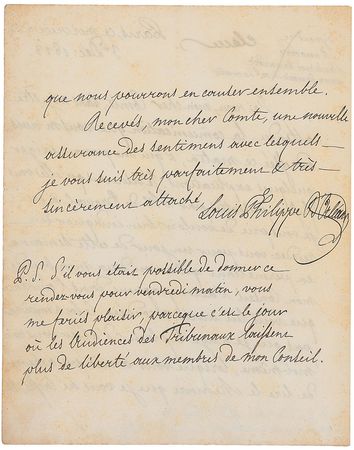 que nous pourrons en causer ensemble.
Recevés, mon cher Comte, une nouvelle
assurance des sentimens avec lesquels
je vous suis très parfaitement & très
sincèrement attaché,
Louis Philippe D'Orléans
P.S. S'il vous était possible de donner ce
rendez-vous pour vendredi matin, vous
me feriés plaisir, parceque c'est le jour
où les Audiences des Tribunaux laissent
plus de liberté aux membres de mon Conseil.